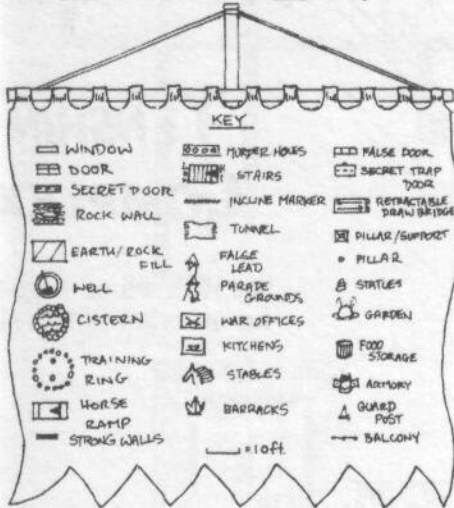 KEY
WINDOW
DOOR
SECRET DOOR
ROCK WALL
EARTH/ROCK
FILL
WELL
CISTERN
TRAINING
RING
HORSE
RAMP
STRONG WALLS
MURDER HOLES
STAIRS
INCLINE MARKER
TUNNEL
FALSE
LEAD
PARADE
GROUNDS
WAR OFFICES
KITCHENS
STABLES
BARRACKS
=10ft.
FALSE DOOR
SECRET TRAP
DOOR
RETRACTABLE
DRAWBRIDGE
PILLAR/SUPPORT
PILLAR
STATUES
GARDEN
FOOD
STORAGE
ARMORY
GUARD
POST
BALCONY